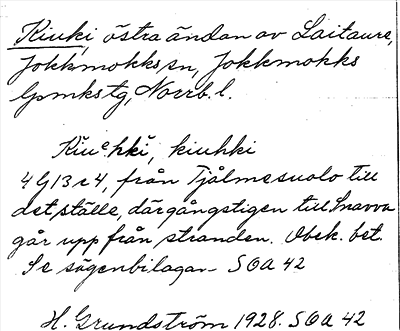 Kiuki, östra ändan av Laitaure,
Jokkmokks sn, Jokkmokks
lpmkstg, Norrb. l.
Kiuᵉhki, kiuhki
4 G 13 c 4, från Tjålmesuolo till
det ställe, där gångstigen till Snavva
går upp från stranden. Obek. bet.
Se sägenbilagan SOA 42
H. Grundström 1928. SOA 42